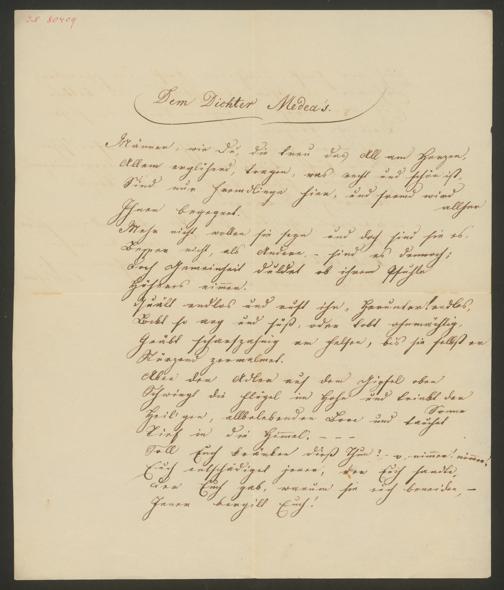 Dem Dichter Medea's.
Männer, wie Du, die treu das All am Herzen,
Allem erglühend, tragen, was recht und schön ist,
Sind nur Fremdlinge hier, und fremd wird
allhier
Ihnen begegnet.
Mehr nicht wollen sie seyn und doch sind sie es.
Besser nicht, als Andere, – sind es dennoch;
Doch Gemeinheit duldet ob ihrem
Höheres nimmer.
Quält endlos und ruft ihn, Herunter! endlos,
Lockt so und süß, oder tobt ohnmächtig.
am Felsen, bis sie selbst
zermalmet.
Aber der Adler auf dem Gipfel oben
Schwingt die Flügel im Hohe und trinkt den
Sonne
Heiligen, allbelebenden und tauchet
Tief in die Himmel. – – –
Soll Euch kränken dieß Thun? – o nimmer! nimmer!
Euch entschädiget jener, der Euch sandte,
Der Euch gab, warum sie euch beneiden, –
Jener vergilt Euch!